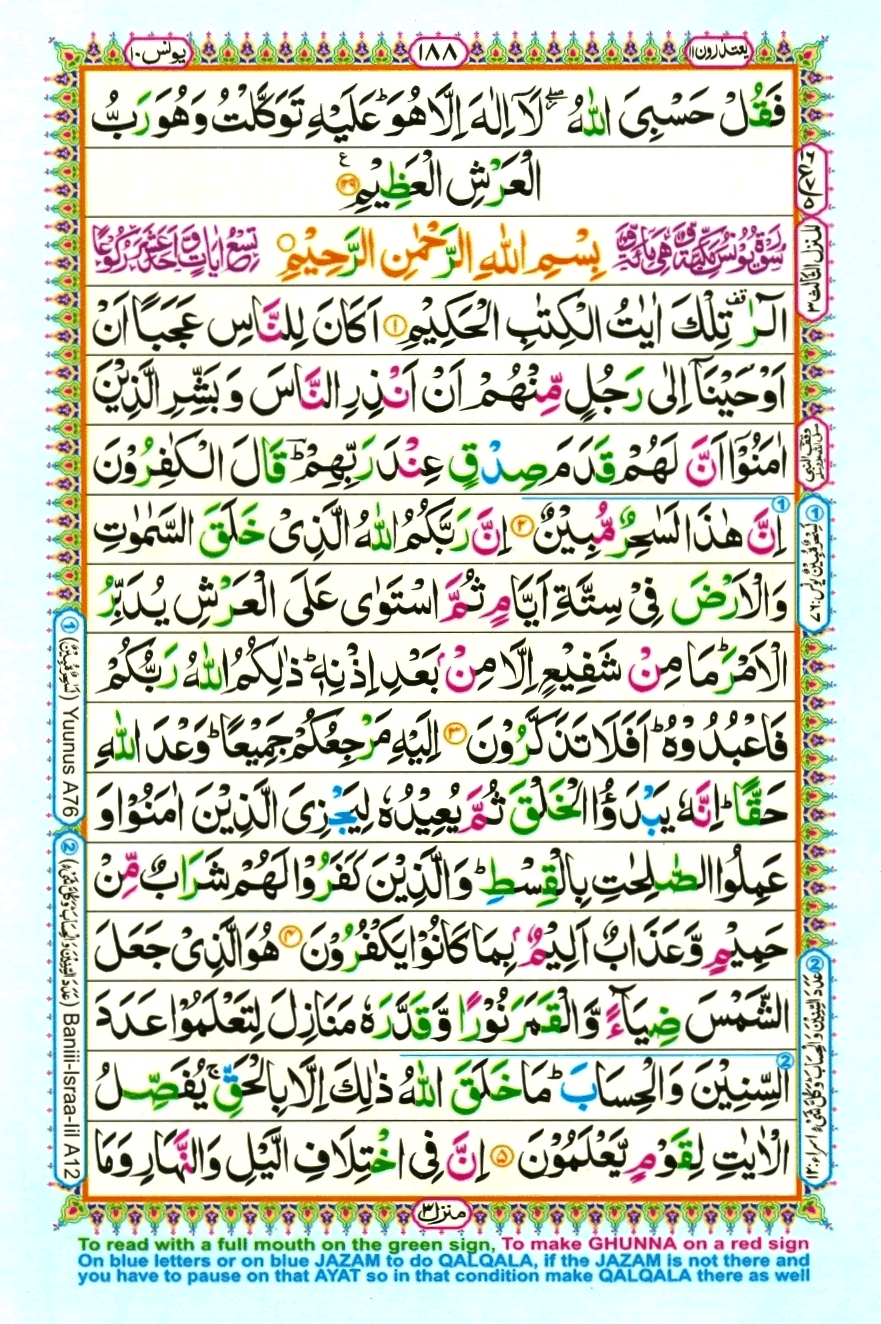 يعتذرون ١١
١٨٨
يونس ١٠
فَقُلْ حَسْبِىَ اللّٰهُ ۖ لَاۤ اِلٰهَ اِلَّا هُوَ ؕ عَلَيْهِ تَوَكَّلْتُ وَهُوَ رَبُّ
الْعَرْشِ الْعَظِيْمِ ۧ ﴿۱۲۹﴾
بِسْمِ اللّٰهِ الرَّحْمٰنِ الرَّحِيْمِ
الٓرٰ ࣞ تِلْكَ اٰيٰتُ الْكِتٰبِ الْحَكِيْمِ ﴿۱﴾ اَكَانَ لِلنَّاسِ عَجَبًا اَنْ
اَوْحَيْنَاۤ اِلٰى رَجُلٍ مِّنْهُمْ اَنْ اَنْذِرِ النَّاسَ وَ بَشِّرِ الَّذِيْنَ
اٰمَنُوْۤا اَنَّ لَهُمْ قَدَمَ صِدْقٍ عِنْدَ رَبِّهِمْ ؔؕ قَالَ الْكٰفِرُوْنَ
اِنَّ هٰذَا لَسٰحِرٌ مُّبِيْنٌ ﴿۲﴾ اِنَّ رَبَّكُمُ اللّٰهُ الَّذِىْ خَلَقَ السَّمٰوٰتِ
وَالْاَرْضَ فِىْ سِتَّةِ اَيَّامٍ ثُمَّ اسْتَوٰى عَلَى الْعَرْشِ يُدَبِّرُ
الْاَمْرَ ؕ مَا مِنْ شَفِيْعٍ اِلَّا مِنْۢ بَعْدِ اِذْنِهٖ ؕ ذٰلِكُمُ اللّٰهُ رَبُّكُمْ
فَاعْبُدُوْهُ ؕ اَفَلَا تَذَكَّرُوْنَ ﴿۳﴾ اِلَيْهِ مَرْجِعُكُمْ جَمِيْعًا ؕ وَعْدَ اللّٰهِ
حَقًّا ؕ اِنَّهٗ يَبْدَؤُا الْخَلْقَ ثُمَّ يُعِيْدُهٗ لِيَجْزِىَ الَّذِيْنَ اٰمَنُوْا وَ
عَمِلُوا الصّٰلِحٰتِ بِالْقِسْطِ ؕ وَالَّذِيْنَ كَفَرُوْا لَهُمْ شَرَابٌ مِّنْ
حَمِيْمٍ وَّعَذَابٌ اَلِيْمٌۢ بِمَا كَانُوْا يَكْفُرُوْنَ ﴿۴﴾ هُوَ الَّذِىْ جَعَلَ
الشَّمْسَ ضِيَآءً وَّالْقَمَرَ نُوْرًا وَّقَدَّرَهٗ مَنَازِلَ لِتَعْلَمُوْا عَدَدَ
السِّنِيْنَ وَالْحِسَابَ ؕ مَا خَلَقَ اللّٰهُ ذٰلِكَ اِلَّا بِالْحَقِّ ۚ يُفَصِّلُ
الْاٰيٰتِ لِقَوْمٍ يَّعْلَمُوْنَ ﴿۵﴾ اِنَّ فِى اخْتِلَافِ الَّيْلِ وَالنَّهَارِ وَمَا
المنزل الثالث ٣
① (لَسِحْرٌ مُّبِيْنٌ) Yuunus A76
② (عَدَدَ السِّنِيْنَ وَالْحِسَابَ وَكُلَّ شَىْءٍ) Baniii-Israa-Iil A12
منزل ٣
To read with a full mouth on the green sign, To make GHUNNA on a red sign
On blue letters or on blue JAZAM to do QALQALA, if the JAZAM is not there and
you have to pause on that AYAT so in that condition make QALQALA there as well